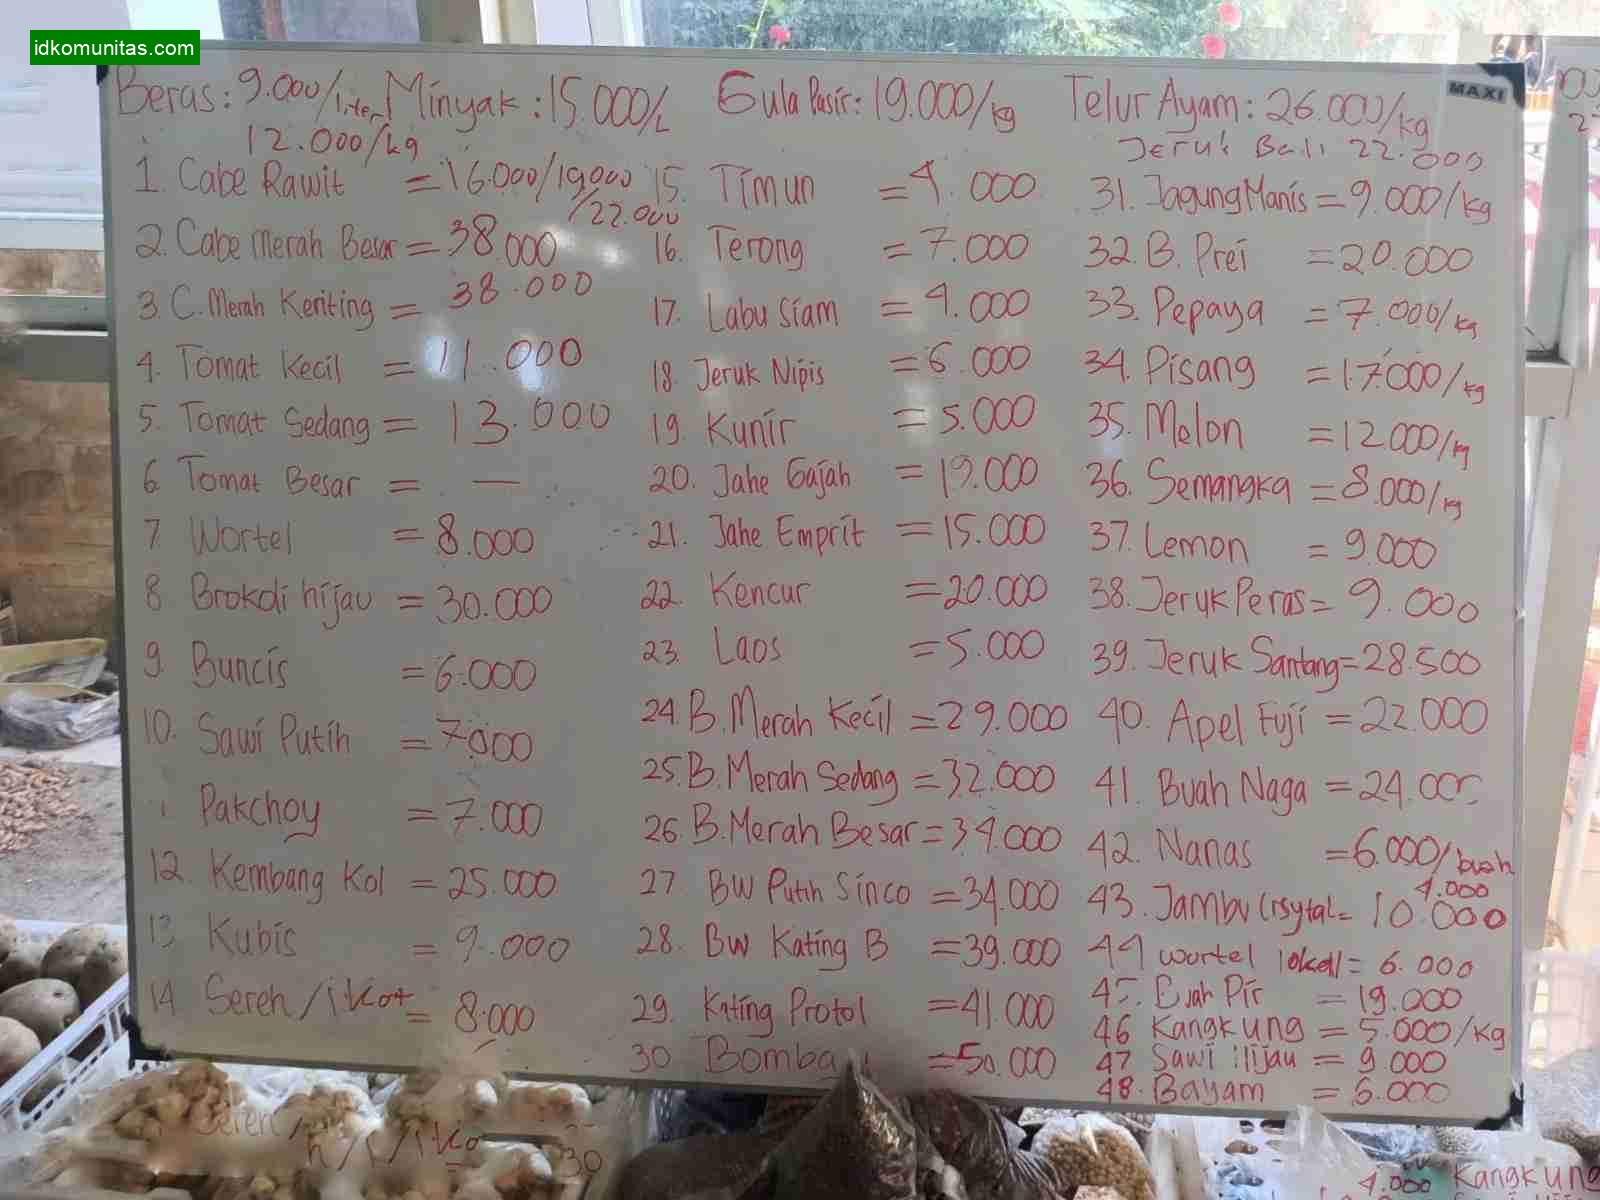 idkomunitas.com
MAXI
Beras: 9.000/liter Minyak: 15.000/L Gula Pasir: 19.000/kg Telur Ayam: 26.000/kg
12.000/kg
Jeruk Bali 22.000
1. Cabe Rawit = 16.000/19.000
/22.000
2. Cabe Merah Besar = 38.000
3. C. Merah Keriting = 38.000
4. Tomat Kecil = 11.000
5. Tomat Sedang = 13.000
6. Tomat Besar = —
7. Wortel = 8.000
8. Brokoli hijau = 30.000
9. Buncis = 6.000
10. Sawi Putih = 7.000
Pakchoy = 7.000
12. Kembang Kol = 25.000
13 Kubis = 9.000
14 Sereh/ikat = 8.000
15. Timun = 4.000
16. Terong = 7.000
17. Labu Siam = 4.000
18. Jeruk Nipis = 6.000
19. Kunir = 5.000
20. Jahe Gajah = 19.000
21. Jahe Emprit = 15.000
22. Kencur = 20.000
23. Laos = 5.000
24. B. Merah Kecil = 29.000
25. B. Merah Sedang = 32.000
26. B. Merah Besar = 34.000
27 BW Putih Sinco = 34.000
28. BW Kating B = 39.000
29. Kating Protol = 41.000
30 Bomba = 50.000
31. Jagung Manis = 9.000/kg
32. B. Prei = 20.000
33. Pepaya = 7.000/kg
34. Pisang = 17.000/kg
35. Melon = 12.000/kg
36. Semangka = 8.000/kg
37. Lemon = 9.000
38. Jeruk Peras = 9.000
39. Jeruk Santang = 28.500
40. Apel Fuji = 22.000
41. Buah Naga = 24.000
42. Nanas = 6.000/buah
4.000
43. Jambu Crsytal = 10.000
44 wortel lokal = 6.000
45. Buah Pir = 19.000
46 Kangkung = 5.000/kg
47 Sawi Hijau = 9.000
48. Bayam = 6.000
4.000 Kangkung